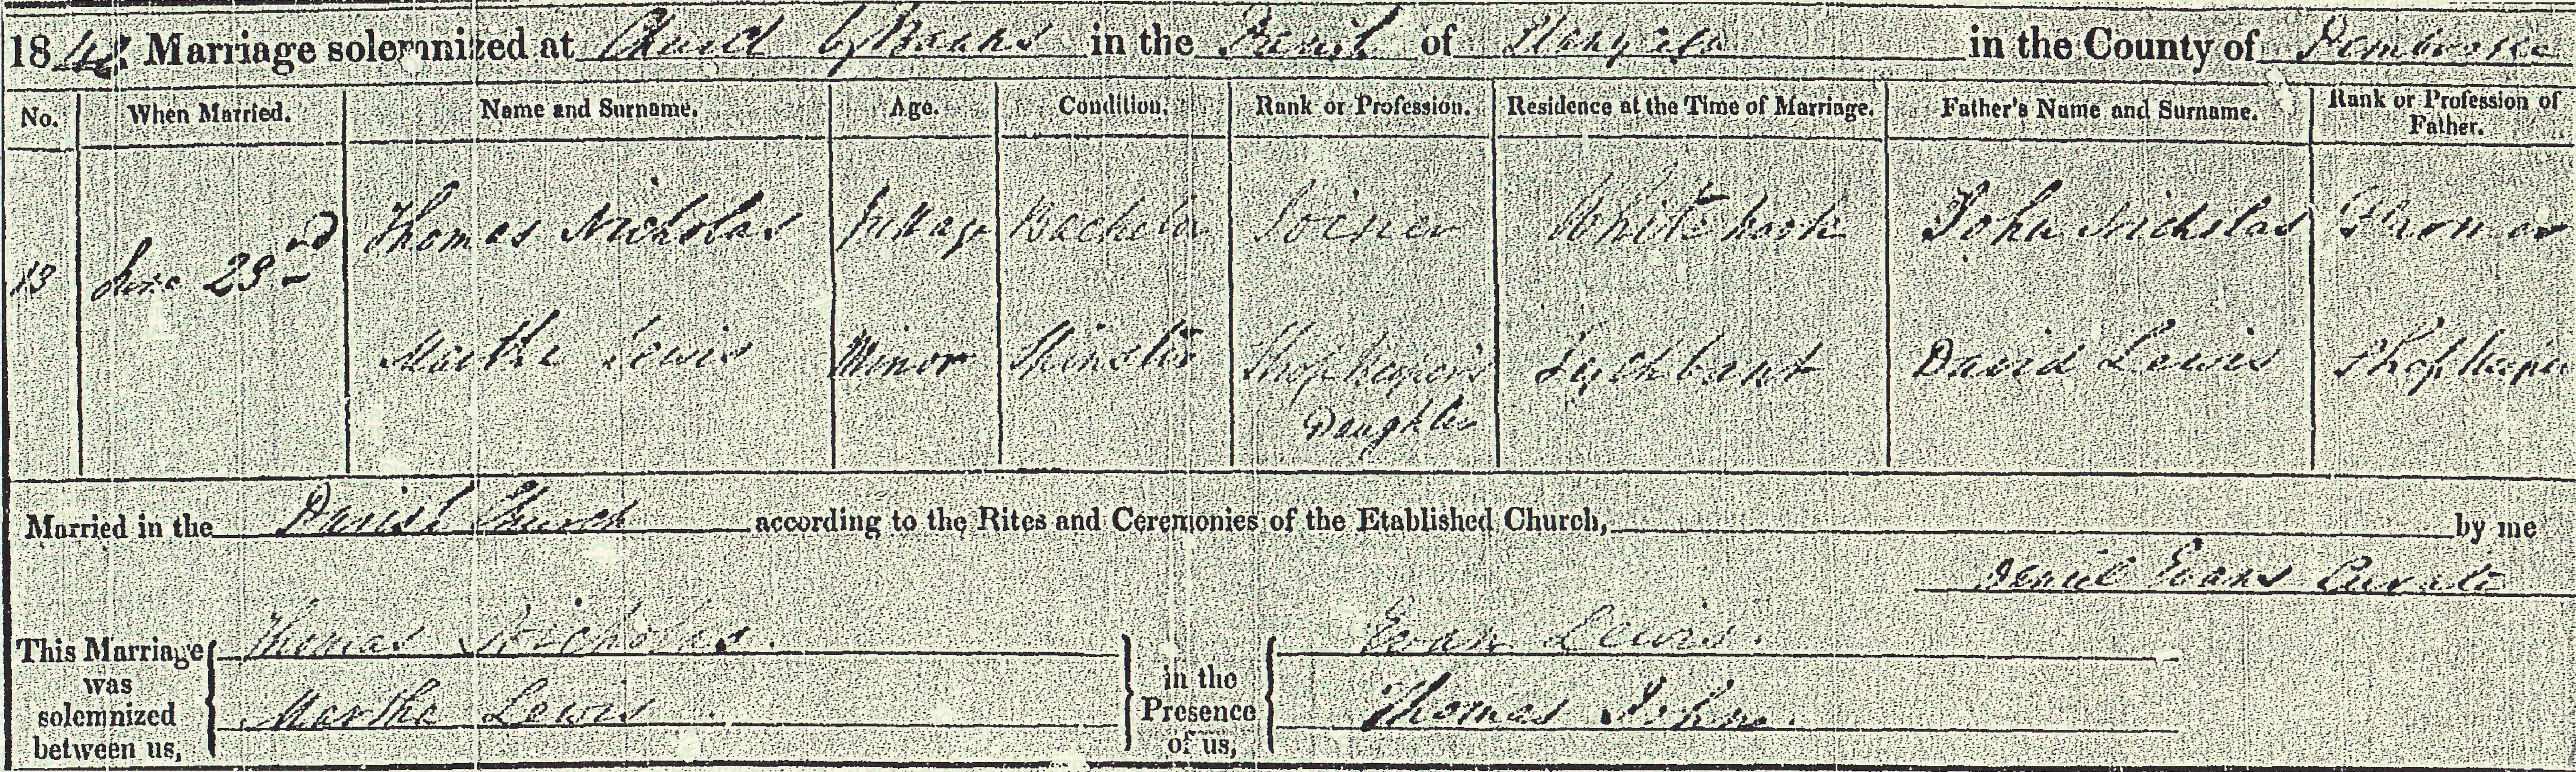 1842 Marriage solemnized at Church by Banns in the Parish of in the County of Pembroke
No. When Married. Name and Surname. Age. Condition. Rank or Profession. Residence at the Time of Marriage. Father's Name and Surname. Rank or Profession of Father.
13 June 23rd Thomas Nicholas Full age Bachelor Joiner Whitehook John Nicholas Farmer
Martha Lewis Minor Spinster Shopkeeper's Daughter David Lewis Shopkeeper
Married in the Parish Church according to the Rites and Ceremonies of the Etablished Church, by me
Daniel Evans Curate
This Marriage was solemnized between us, Thomas Nicholas. Martha Lewis in the Presence of us, Evan Lewis. Thomas John.